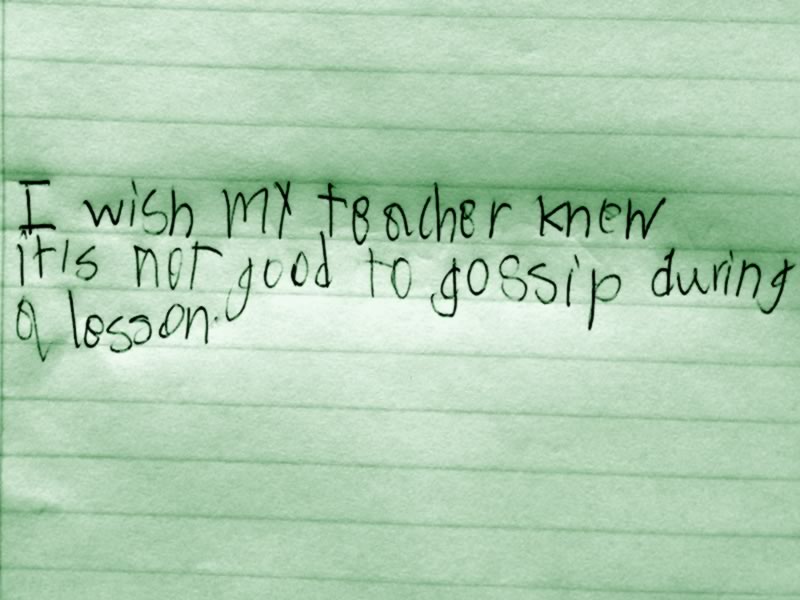 I wish my teacher knew
it's not good to gossip during
a lesson.